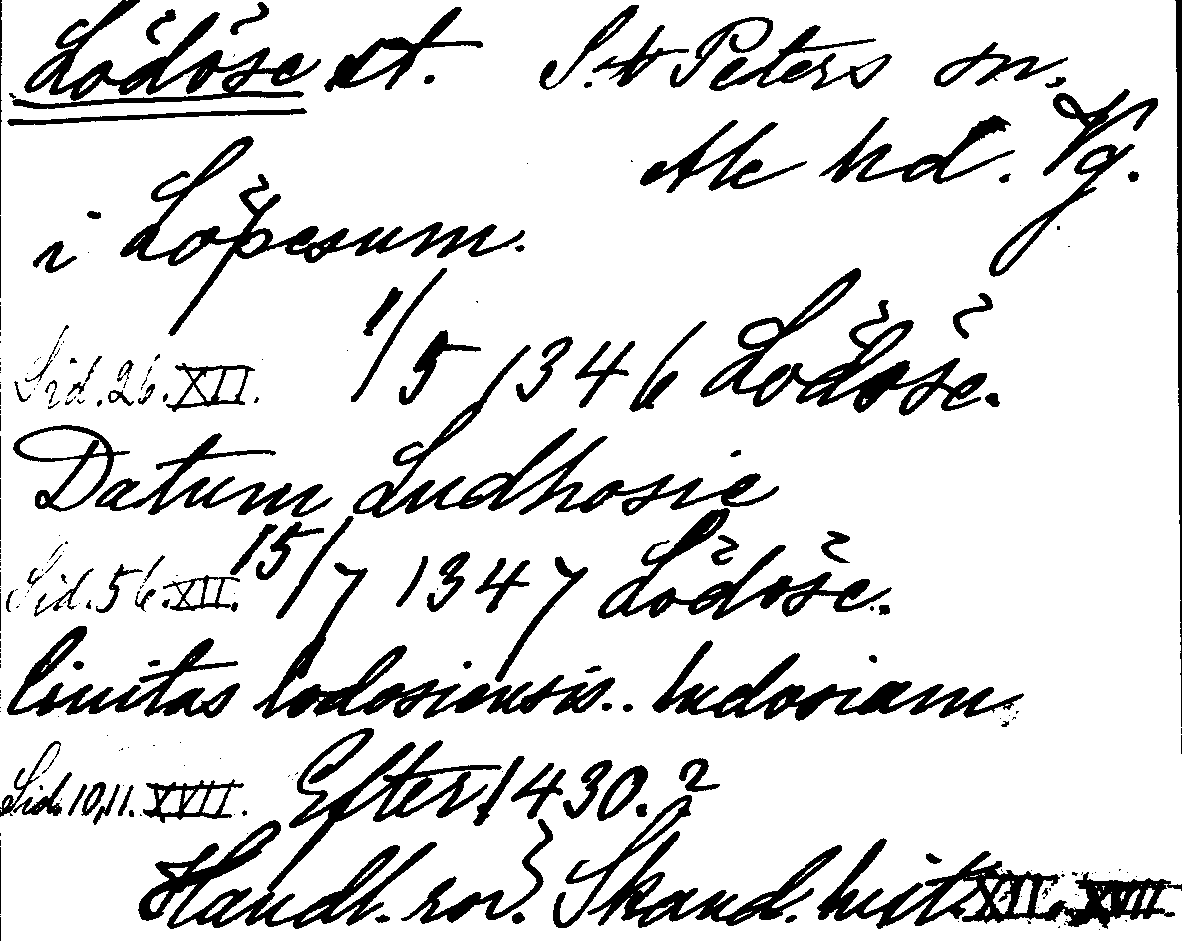 Lödöse st. S:t Peters sn.
Ale hd. Vg.
i Löþesum.
Sid. 26. XII. 1/5 1346 Lödöse.
Datum Ludhosie
Sid. 56. XII. 15/7 1347 Lödöse.
Ciuitas lodosiensis.. ludosiam
Sid. 10, 11. XVII. Efter 1430.?
Handl. rör. Skand. hist. XII. XVII.